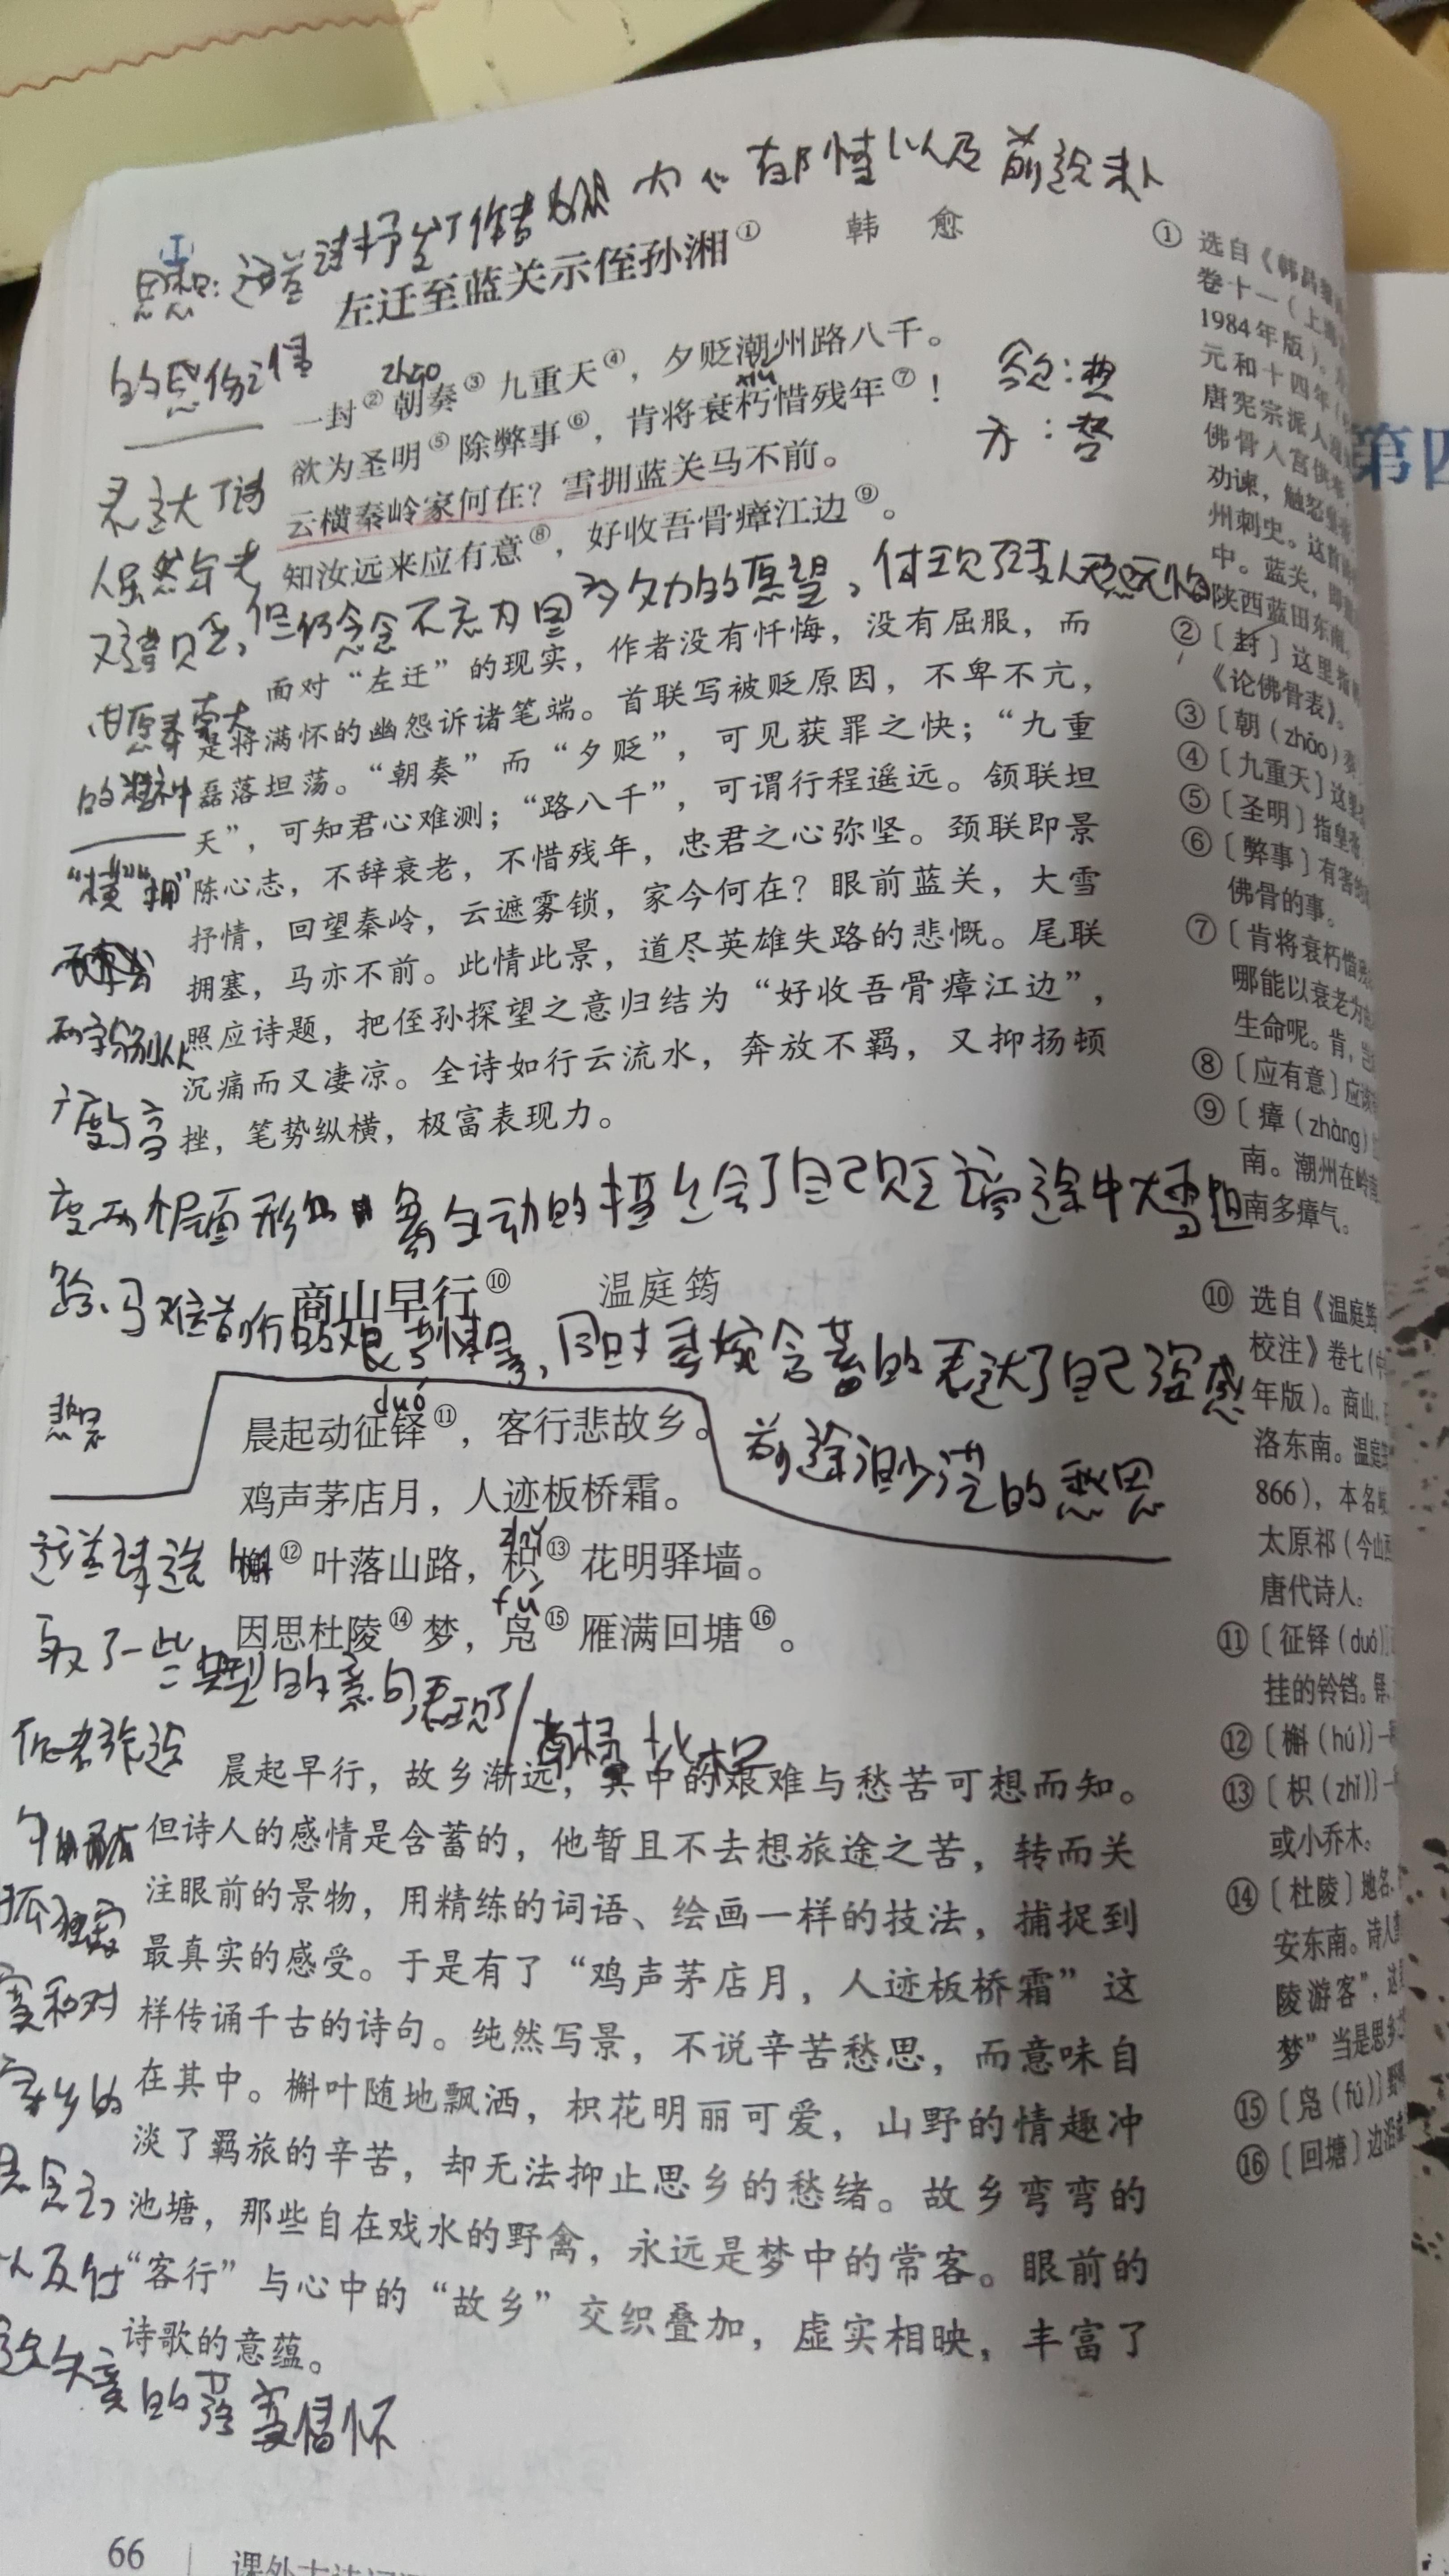 思想：这首诗抒发了作者内心郁愤以及前途未卜
的感伤之情
左迁至蓝关示侄孙湘①
韩 愈
zhāo
一封②朝奏③九重天④，夕贬潮州路八千。
xiǔ
欲为圣明⑤除弊事⑥，肯将衰朽惜残年⑦！
云横秦岭家何在？雪拥蓝关马不前。
知汝远来应有意⑧，好收吾骨瘴江边⑨。
欲：想
表达了诗
人虽然年老
又遭贬，但仍念念不忘为国效力的愿望，体现了诗人无怨无悔
甘愿奉献
的精神
面对“左迁”的现实，作者没有忏悔，没有屈服，而
是将满怀的幽怨诉诸笔端。首联写被贬原因，不卑不亢，
磊落坦荡。“朝奏”而“夕贬”，可见获罪之快；“九重
天”，可知君心难测；“路八千”，可谓行程遥远。颔联坦
陈心志，不辞衰老，不惜残年，忠君之心弥坚。颈联即景
抒情，回望秦岭，云遮雾锁，家今何在？眼前蓝关，大雪
拥塞，马亦不前。此情此景，道尽英雄失路的悲慨。尾联
照应诗题，把侄孙探望之意归结为“好收吾骨瘴江边”，
沉痛而又凄凉。全诗如行云流水，奔放不羁，又抑扬顿
挫，笔势纵横，极富表现力。
“横”“拥”
两字分别从
广度与高
度两个层面形象生动的描绘了自己贬谪途中大雪阻
路，马难前行的艰难情景，同时委婉含蓄的表达了自己深感
前途渺茫的愁思
商山早行⑩
温庭筠
duó
晨起动征铎⑪，客行悲故乡。
鸡声茅店月，人迹板桥霜。
zhǐ
槲⑫叶落山路，枳⑬花明驿墙。
fú
因思杜陵⑭梦，凫⑮雁满回塘⑯。
愁思
这首诗选
取了一些典型的意向，表现了
作者旅途
孤独寂
寞和对
家乡的
思念之
以及仕
途失意的落寞情怀
晨起早行，故乡渐远，其中的艰难与愁苦可想而知。
但诗人的感情是含蓄的，他暂且不去想旅途之苦，转而关
注眼前的景物，用精练的词语、绘画一样的技法，捕捉到
最真实的感受。于是有了“鸡声茅店月，人迹板桥霜”这
样传诵千古的诗句。纯然写景，不说辛苦愁思，而意味自
在其中。槲叶随地飘洒，枳花明丽可爱，山野的情趣冲
淡了羁旅的辛苦，却无法抑止思乡的愁绪。故乡弯弯的
池塘，那些自在戏水的野禽，永远是梦中的常客。眼前的
“客行”与心中的“故乡”交织叠加，虚实相映，丰富了
诗歌的意蕴。
① 选自《韩昌黎
卷十一（上海
1984年版）。
元和十四年（
唐宪宗派人迎
佛骨入宫供
劝谏，触怒
州刺史。这首
中。蓝关，即
陕西蓝田东南。
②〔封〕这里指
《论佛骨表》。
③〔朝（zhāo）奏
④〔九重天〕这里
⑤〔圣明〕指皇帝
⑥〔弊事〕有害的
佛骨的事。
⑦〔肯将衰朽惜残
哪能以衰老为
生命呢。肯，岂
⑧〔应有意〕应该
⑨〔瘴（zhàng）
南。潮州在岭南
南多瘴气。
⑩ 选自《温庭筠
校注》卷七（中
年版）。商山，
洛东南。温庭筠
866），本名岐
太原祁（今山西
唐代诗人。
⑪〔征铎（duó）〕
挂的铃铛。铎，
⑫〔槲（hú）〕一
⑬〔枳（zhǐ）〕一
或小乔木。
⑭〔杜陵〕地名，
安东南。诗人
陵游客”，这
梦”当是思乡
⑮〔凫（fú）〕野
⑯〔回塘〕边沿
第四
66
课外古诗词